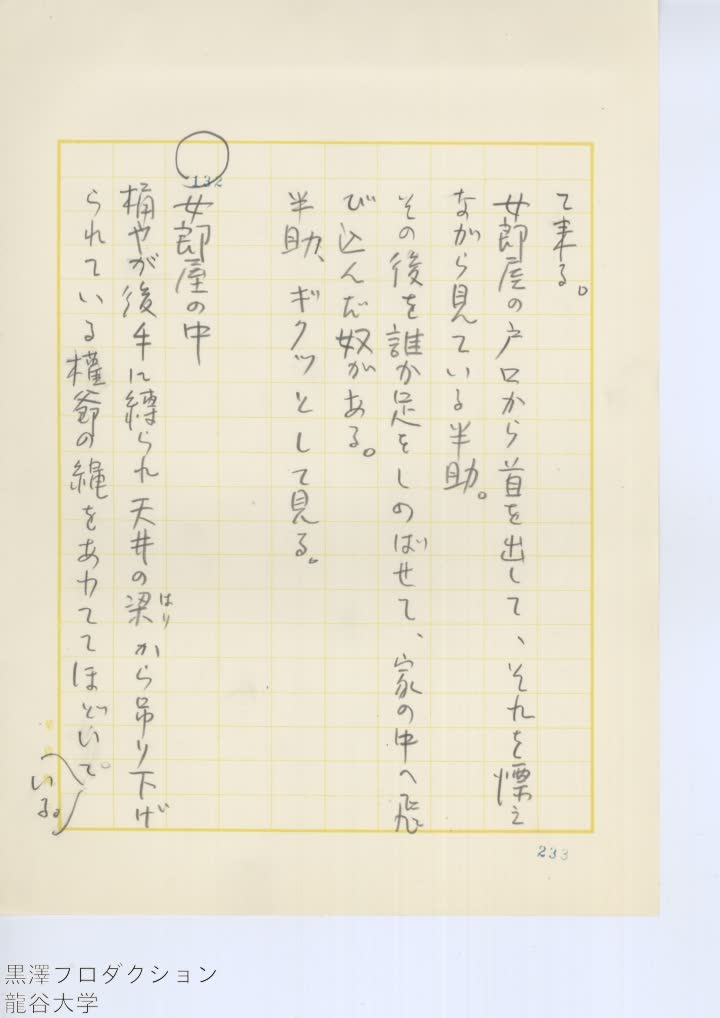 て来る。
女郎屋の戸口から首を出して、それを慄え
ながら見ている半助。
その後を誰か足をしのばせて、家の中へ飛
び込んだ奴がある。
半助、ギクッとして見る。
132
女郎屋の中
桶やが後手に縛られ天井の梁から吊り下げ
はり
られている權爺の縄をあわててほどいて。
いる。
233
黒澤プロダクション
龍谷大学